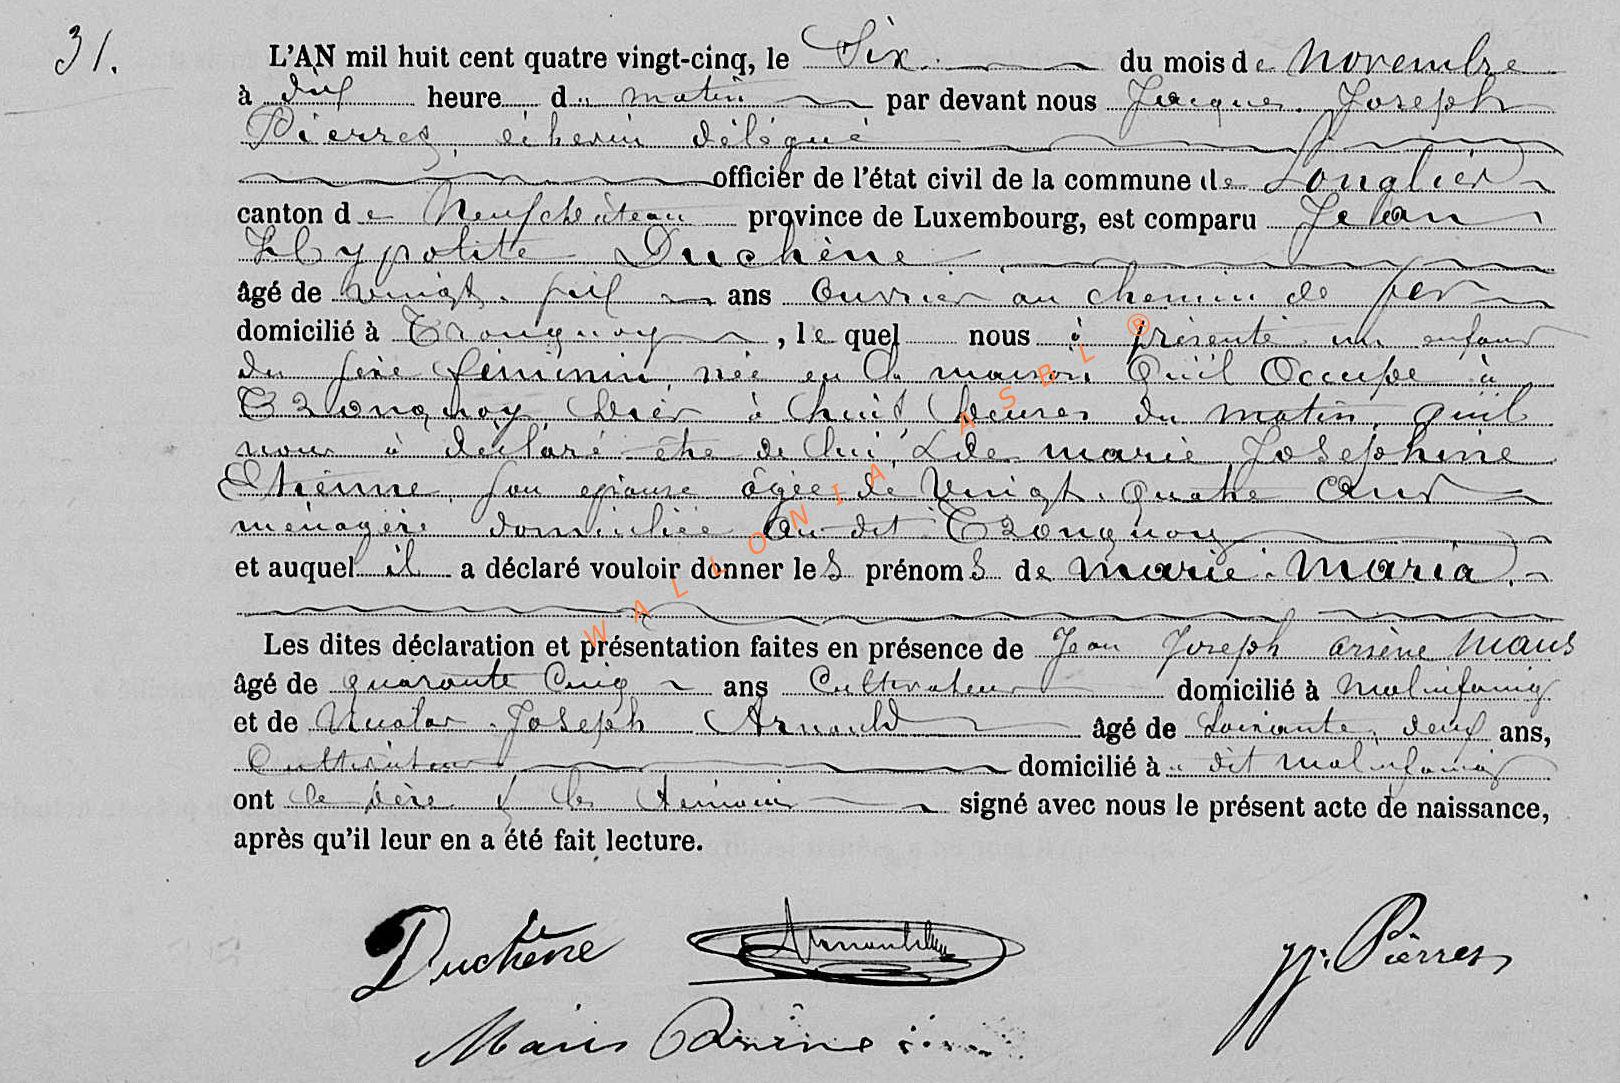 31.
L'AN mil huit cent quatre vingt-cinq, le Six du mois de Novembre
à dix heure d u matin par devant nous Jacques Joseph
Pierres, échevin délégué
officier de l'état civil de la commune de Longlier
canton de Neufchâteau province de Luxembourg, est comparu Jean
Hypolite Duchêne
âgé de vingt ans Ouvrier au chemin de fer
domicilié à Tronquoy, le quel nous à présenté un enfant
du sexe féminin, née en la maison Qu'il Occupe à
Tronquoy hier à huit heures du matin, qu'il
nous à déclaré être de lui, & de marie Joséphine
Etienne, son épouse âgée de Vingt-quatre ans
ménagère domiciliée au dit Tronquoy
et auquel il a déclaré vouloir donner leS prénomS de Marie-Maria
Les dites déclaration et présentation faites en présence de Jean Joseph arsène Maus
âgé de quarante Cinq ans Cultivateur domicilié à Molinfaing
et de Joseph Arnould âgé de soixante-deux ans,
Cultivateur domicilié à u dit Molinfaing
ont le père & les témoins signé avec nous le présent acte de naissance,
après qu'il leur en a été fait lecture.
WALLONIA ASBL ®
Duchêne
JJ. Pierres